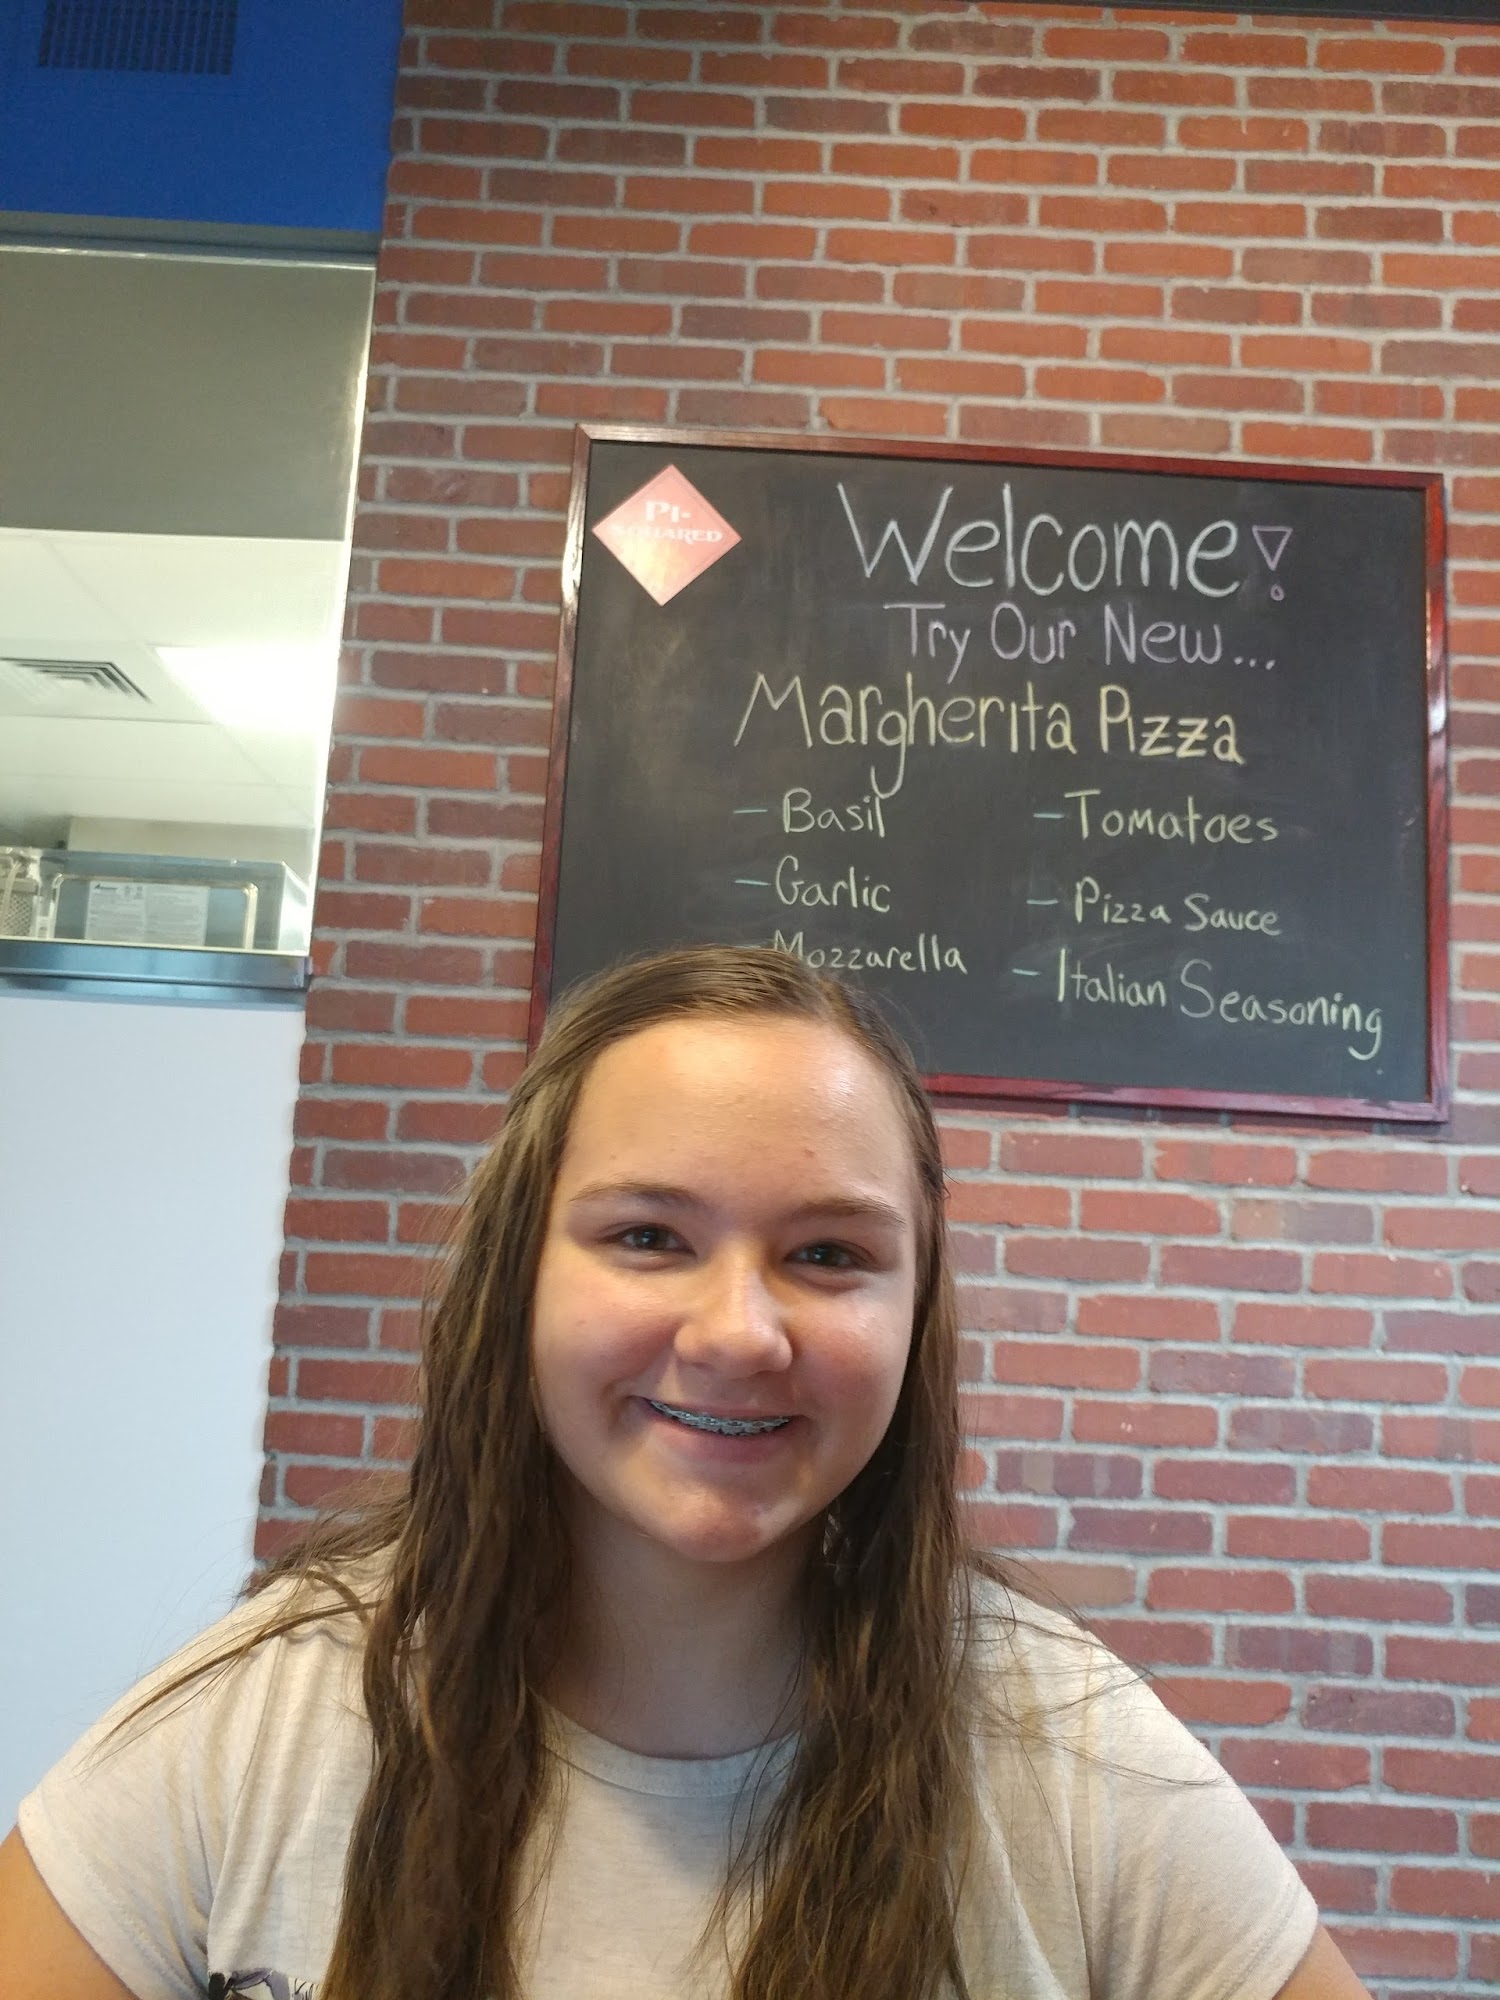 PI-
SQUARED
Welcome!
Try Our New...
Margherita Pizza
- Basil
- Garlic
- Mozzarella
- Tomatoes
- Pizza Sauce
- Italian Seasoning